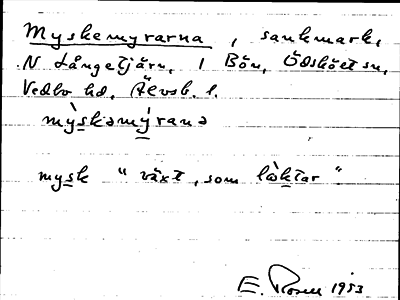 Myskemyrarna, sankmark,
N Långetjärn, 1 Bön, Ödskölt sn,
Vedbo hd, Älvsb. l.
mỳskəmýranə
mysk "växt, som lòktar"
E. Rosell 1953